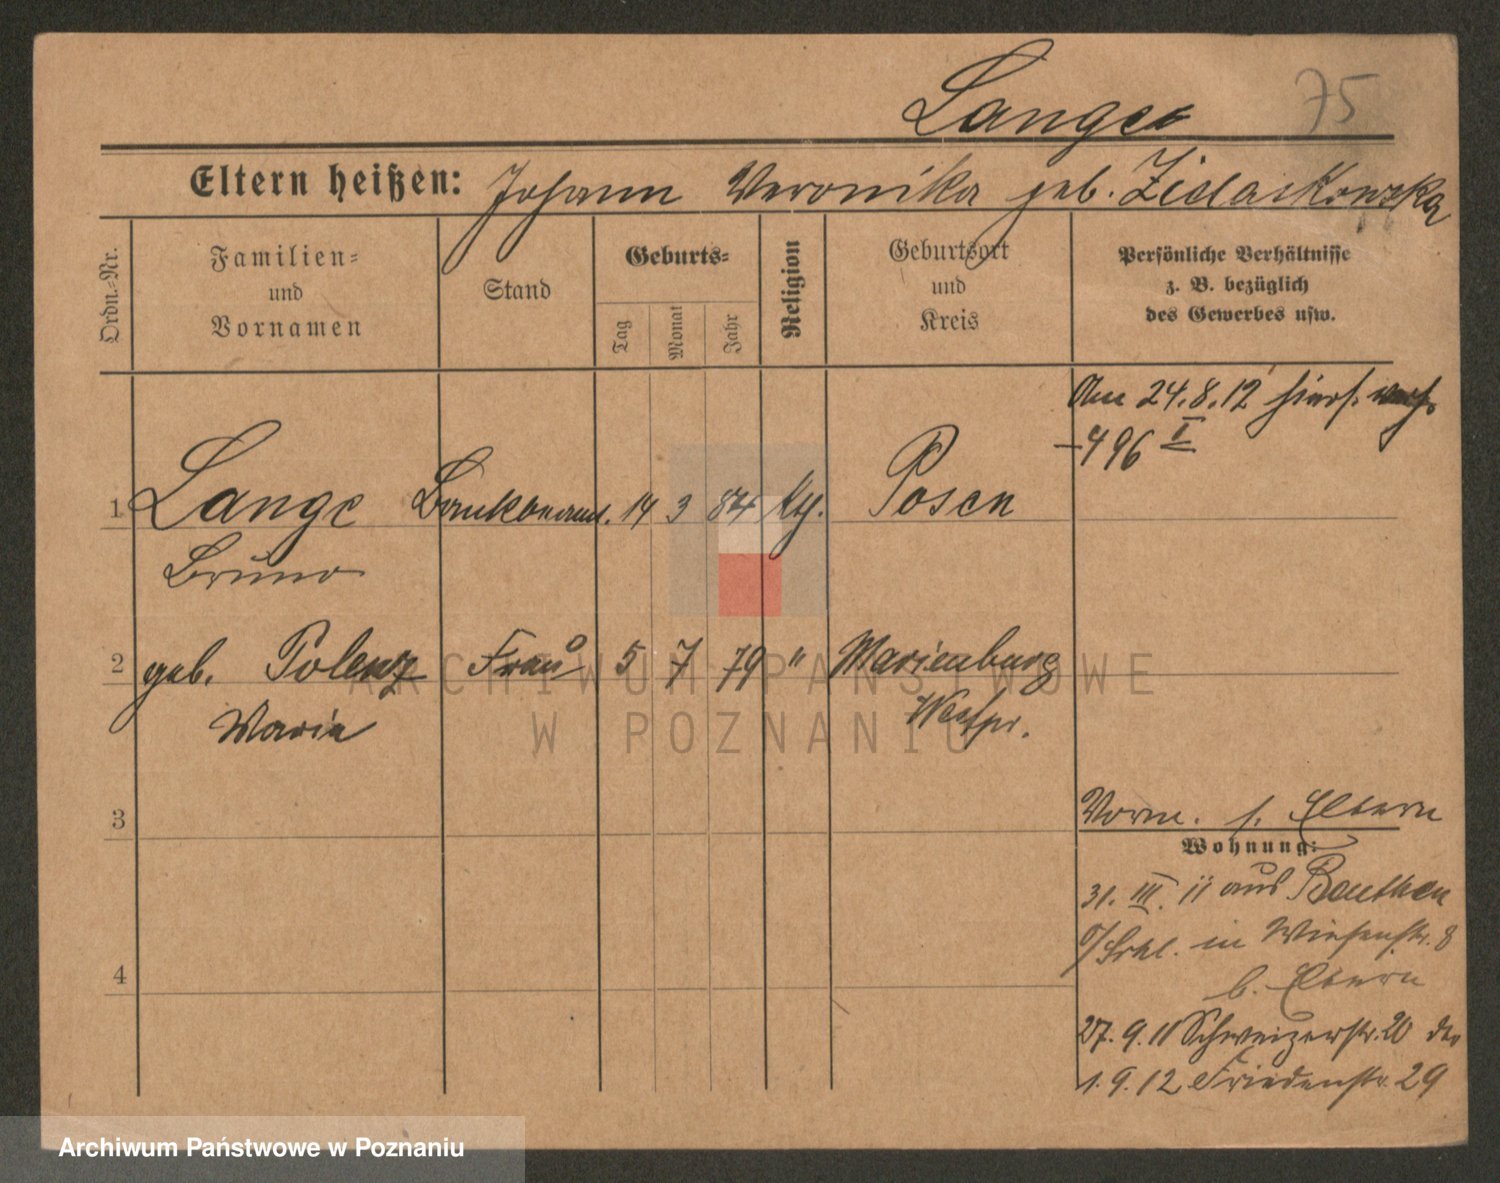 Lange
75
Eltern heißen: Johann Veronika geb. Zielaskowska
Ordn.=Nr.
Familien=
und
Vornamen
Stand
Geburts=
Tag
Monat
Jahr
Religion
Geburtsort
und
Kreis
Persönliche Verhältnisse
z. B. bezüglich
des Gewerbes usw.
Am 24.8.12 hiers.
496 I
1 Lange 14 3 84 Kth. Posen
Bruno
2 geb. Polenz Frau 5 7 79 " Marienburg
Maria Westpr.
3
Vorm. s. Eltern
Wohnung:
31. III. 11 aus Beuthen
O/Schl. in Wiesenstr. 8
b. Eltern
4
27. 9. 11 Schweizerstr. 20
1. 9. 12 Friedenstr. 29
ARCHIWUM PAŃSTWOWE
W POZNANIU
Archiwum Państwowe w Poznaniu